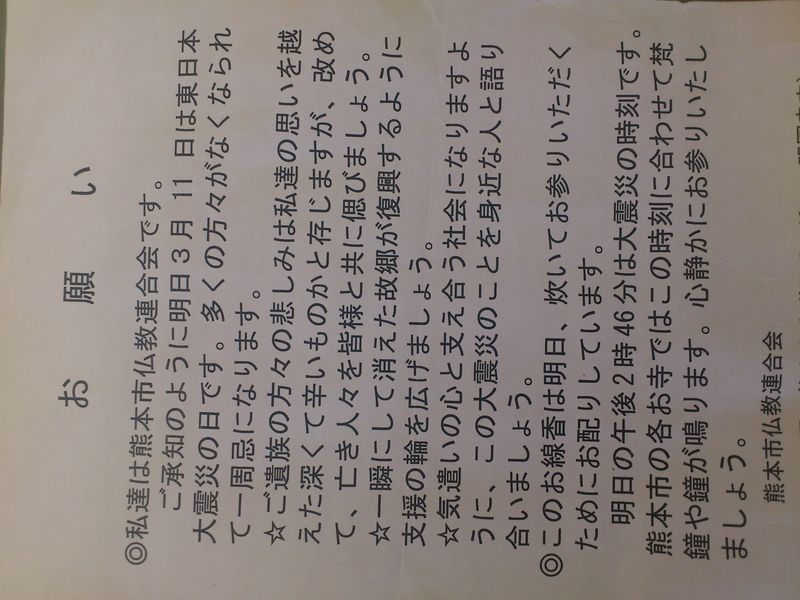 お願い
◎私達は熊本市仏教連合会です。
ご承知のように明日３月 11 日は東日本
大震災の日です。多くの方々がなくなられ
て一周忌になります。
☆ご遺族の方々の悲しみは私達の思いを越
えた深くて辛いものかと存じますが、改め
て、亡き人々を皆様と共に偲びましょう。
☆一瞬にして消えた故郷が復興するように
支援の輪を広げましょう。
☆気遣いの心と支え合う社会になりますよ
うに、この大震災のことを身近な人と語り
合いましょう。
◎このお線香は明日、炊いてお参りいただく
ためにお配りしています。
明日の午後２時 46 分は大震災の時刻です。
熊本市の各お寺ではこの時刻に合わせて梵
鐘や鐘が鳴ります。心静かにお参りいたし
ましょう。
熊本市仏教連合会